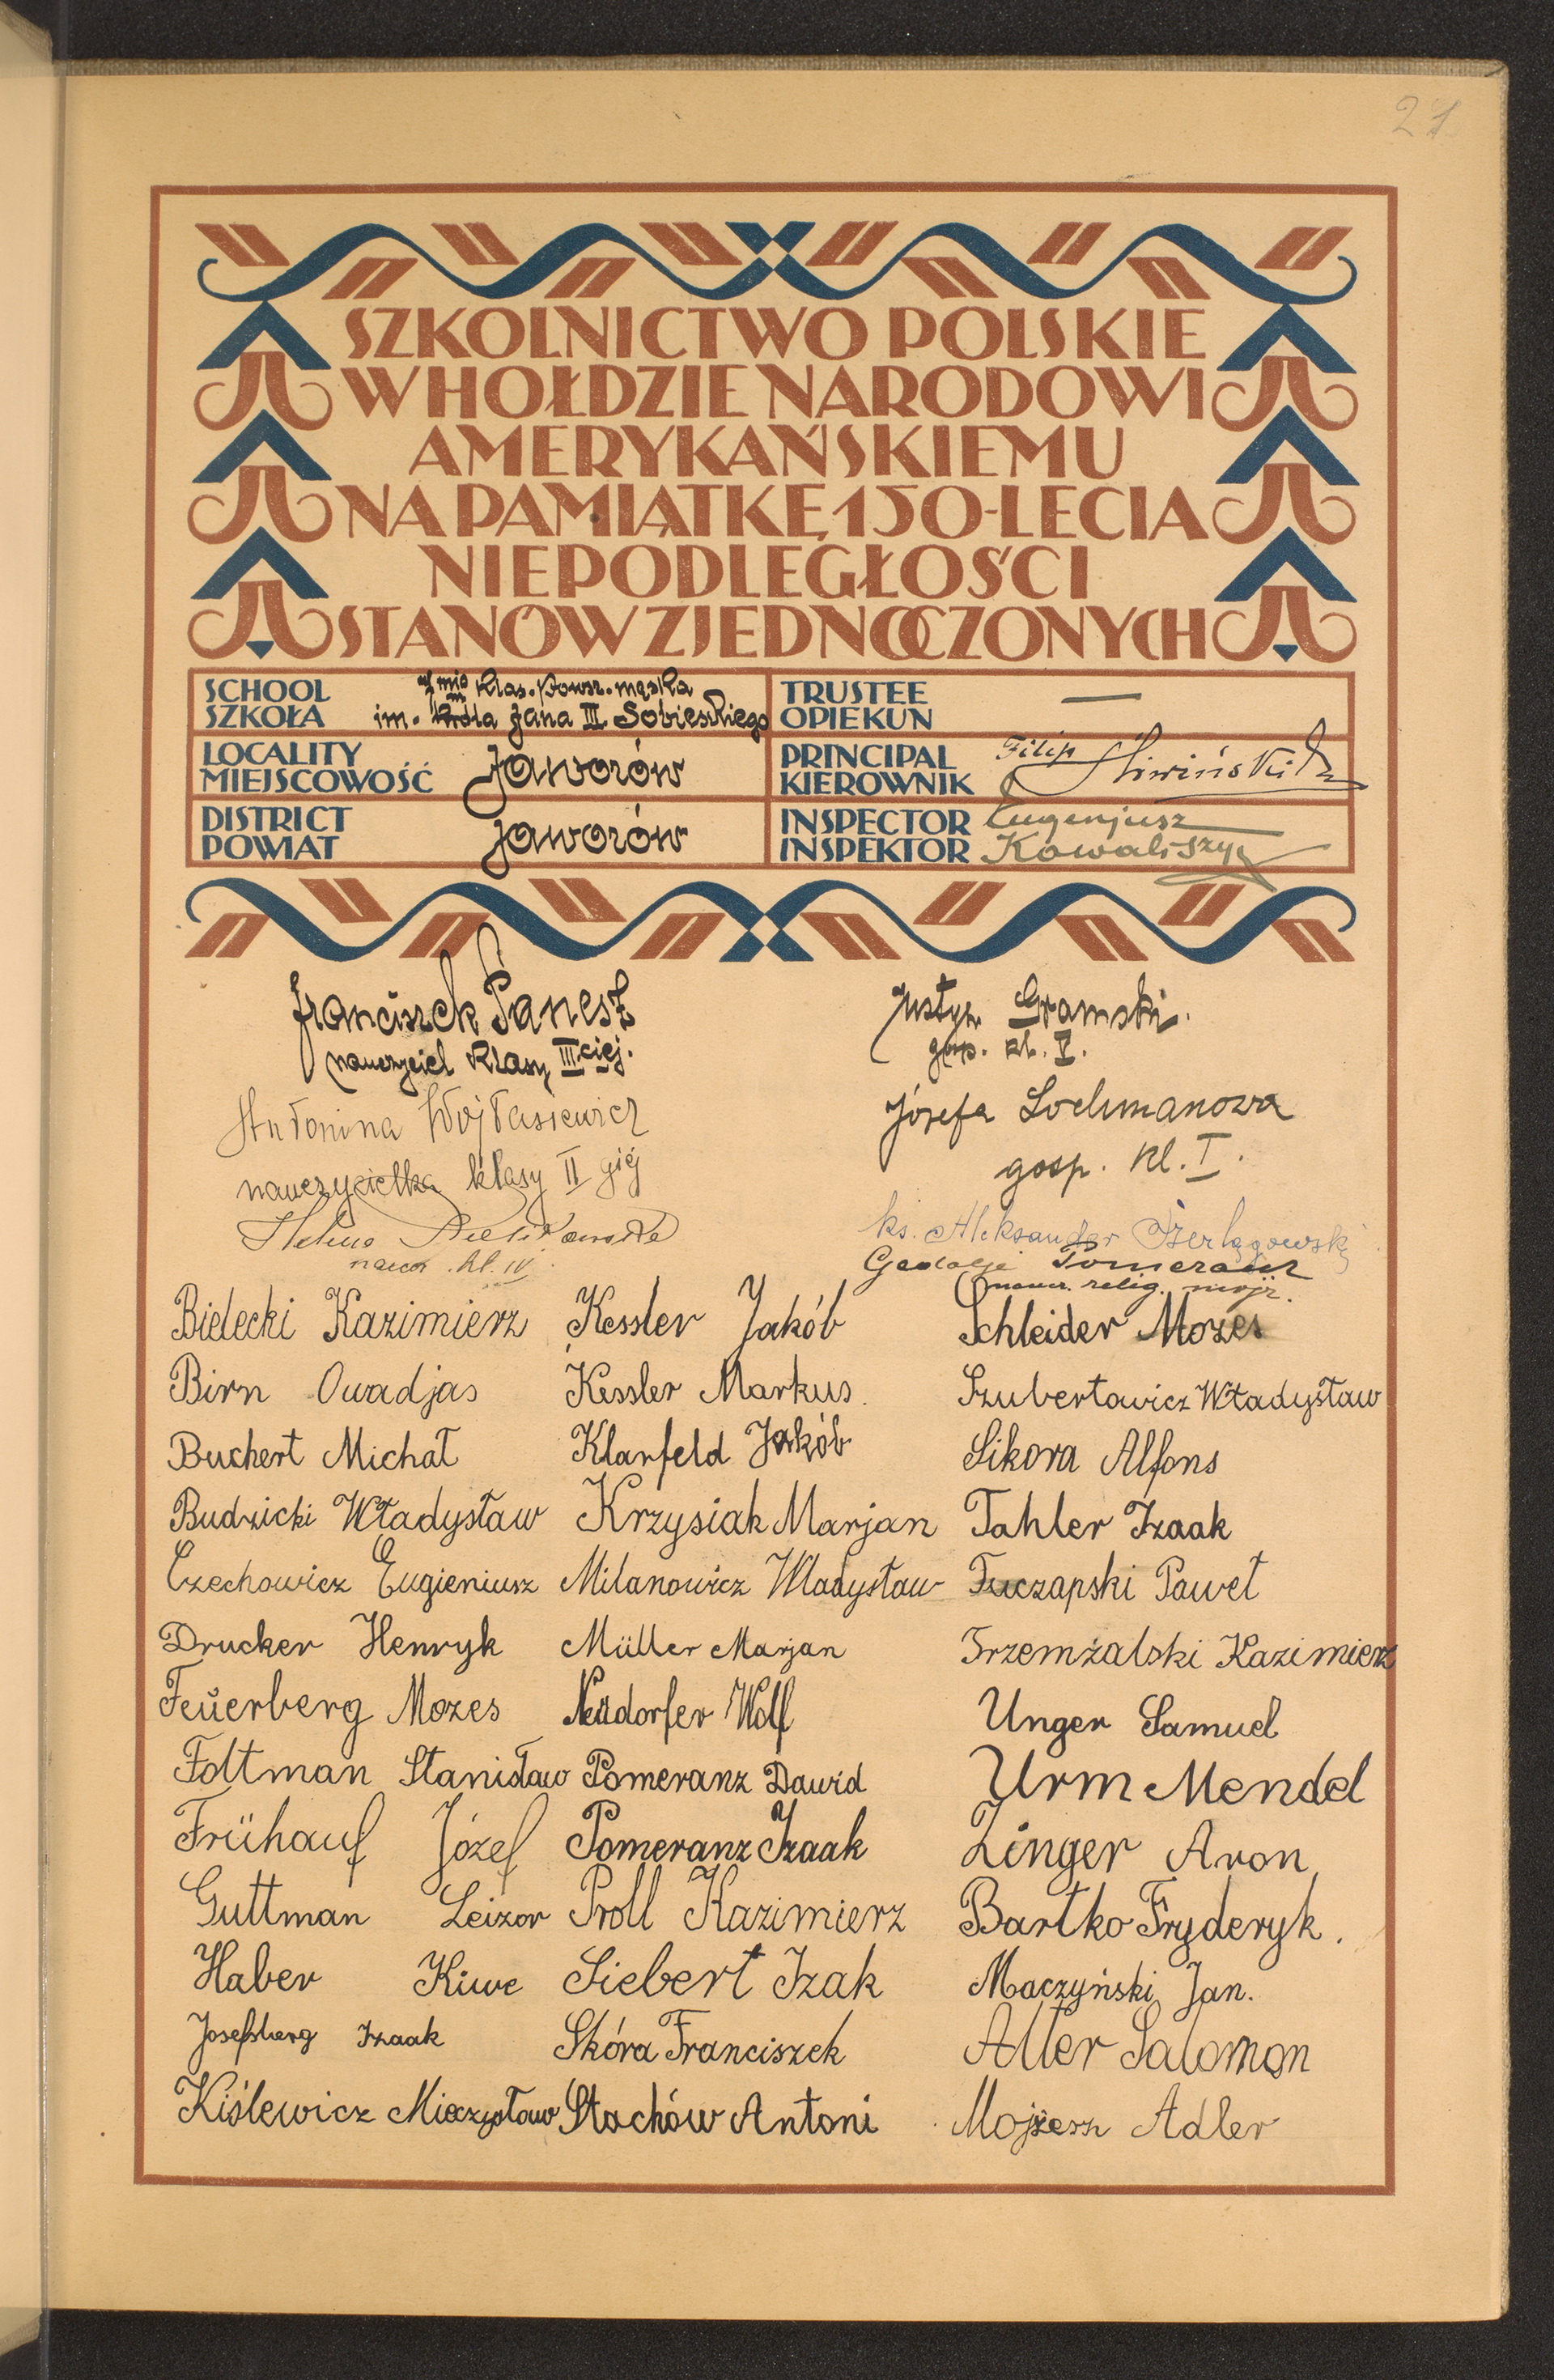 27
SZKOLNICTWO POLSKIE
W HOŁDZIE NARODOWI
AMERYKAŃSKIEMU
NA PAMIĄTKĘ 150-LECIA
NIEPODLEGŁOŚCI
STANÓW ZJEDNOCZONYCH
SCHOOL
SZKOŁA
7 mio klas. powsz. męska
im. Króla Jana III Sobieskiego
TRUSTEE
OPIEKUN
—
LOCALITY
MIEJSCOWOŚĆ
Jaworów
PRINCIPAL
KIEROWNIK
Filip Śliwiński
DISTRICT
POWIAT
Jaworów
INSPECTOR
INSPEKTOR
Eugenjusz
Kowaliszyn
Franciszek Panesz
nauczyciel klasy III ciej.
Justyn Gramski.
gosp. kl. V.
Antonina Wojtasiewicz
nauczycielka klasy II giej
Józefa Lochmanowa
gosp. kl. I.
Helena
naucz. kl. IV.
ks. Aleksander
Gedalje Pomeranz
naucz. relig. mojż.
Bielecki Kazimierz Kessler Jakób Schleider Mozes
Birn Owadjas Kessler Markus. Szubertowicz Władysław
Buchert Michał Klarfeld Jakób Sikora Alfons
Budzicki Władysław Krzysiak Marjan Tahler Izaak
Czechowicz Eugieniusz Milanowicz Władysław Tuczapski Paweł
Drucker Henryk Müller Marjan Trzemżalski Kazimierz
Feüerberg Mozes Neüdorfer Wolf Unger Samuel
Foltman Stanisław Pomeranz Dawid Urm Mendel
Frühauf Józef Pomeranz Izaak Zinger Aron
Guttman Leizor Proll Kazimierz Bartko Fryderyk.
Haber Kiwe Siebert Izak Maczyński Jan.
Josefsberg Izaak Skóra Franciszek Atler Salomon
Kiślewicz Mieczysław Stachów Antoni Mojżesz Adler